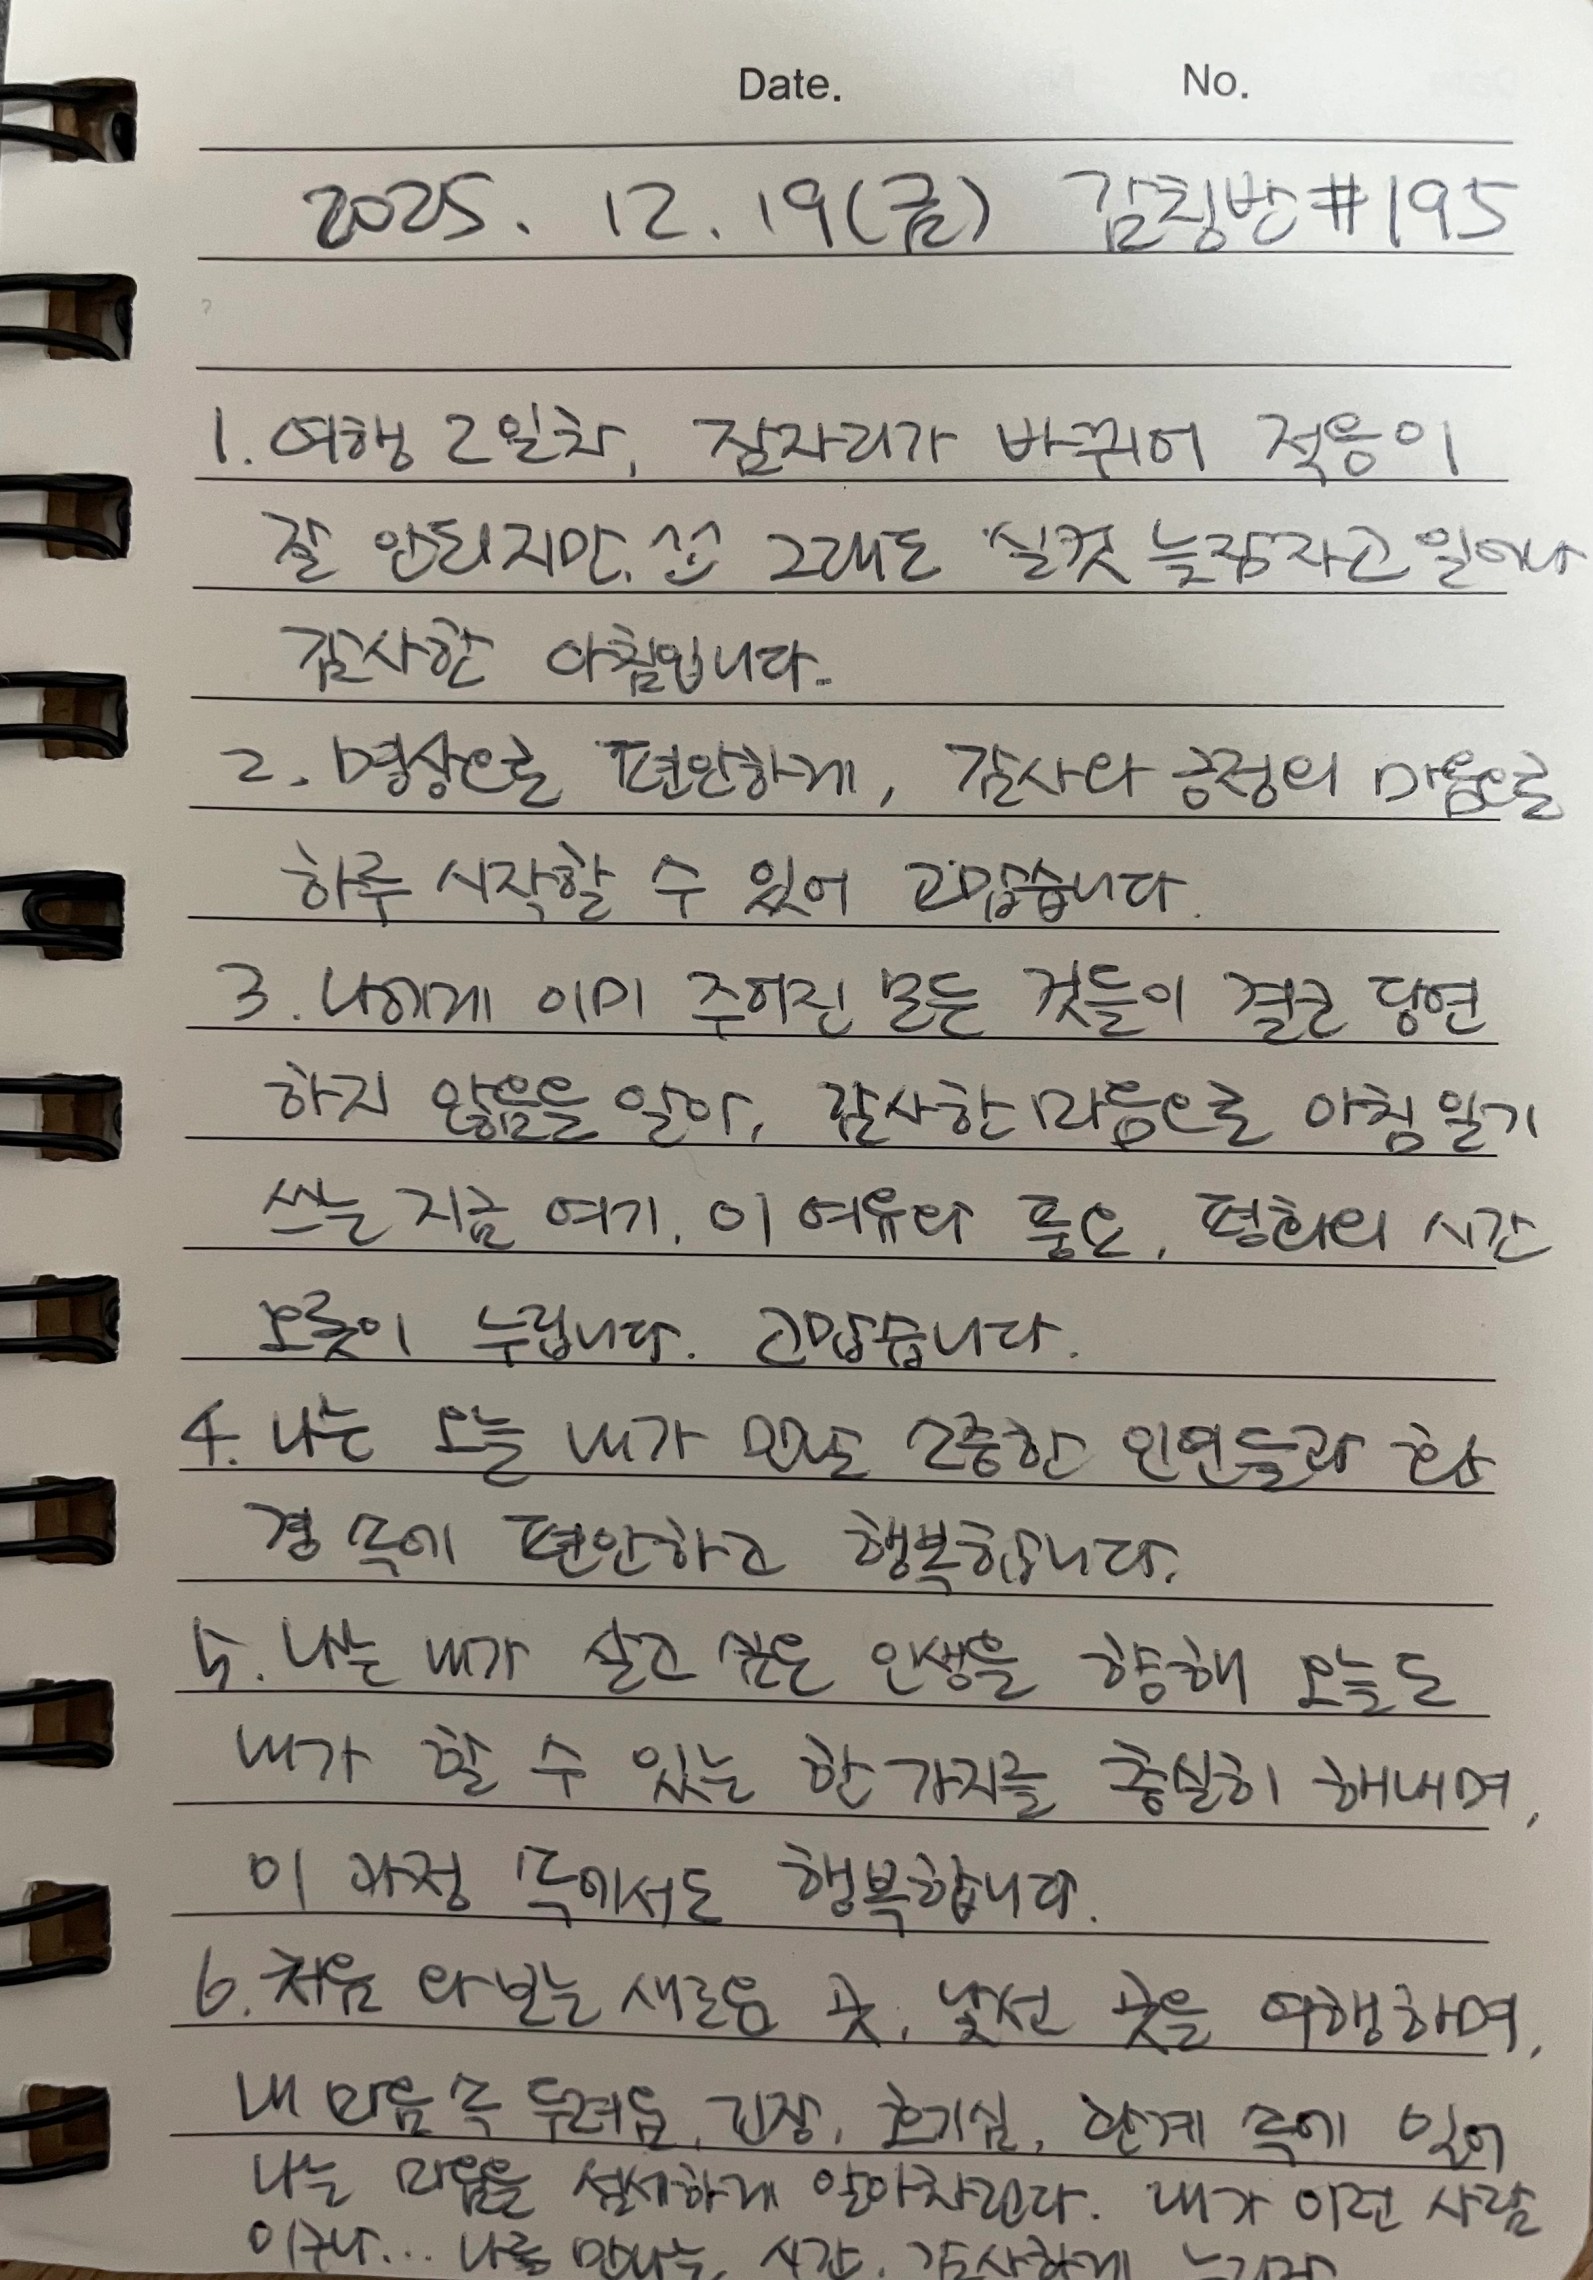 Date. No.
2025. 12. 19(금) 감칭반#195
1. 여행 2일차, 잠자리가 바뀌어 적응이
잘 안되지만, 그래도 실컷 늦잠자고 일어나
감사한 아침입니다.
2. 명상으로 편안하게, 감사와 긍정의 마음으로
하루 시작할 수 있어 고맙습니다.
3. 나에게 이미 주어진 모든 것들이 결코 당연
하지 않음을 알아, 감사한 마음으로 아침 일기
쓰는 지금 여기, 이 여유와 풍요, 평화의 시간
오롯이 누립니다. 고맙습니다.
4. 나는 오늘 내가 만날 소중한 인연들과 환
경 속에 편안하고 행복합니다.
5. 나는 내가 살고 싶은 인생을 향해 오늘도
내가 할 수 있는 한 가지를 충실히 해내며,
이 과정 속에서도 행복합니다.
6. 처음 와보는 새로움 곳, 낯선 곳을 여행하며,
내 마음 속 두려움, 긴장, 호기심, 한계 속에 있어
나는 마음을 섬세하게 알아차린다. 내가 이런 사람
이구나... 나를 만나는 시간, 감사하게